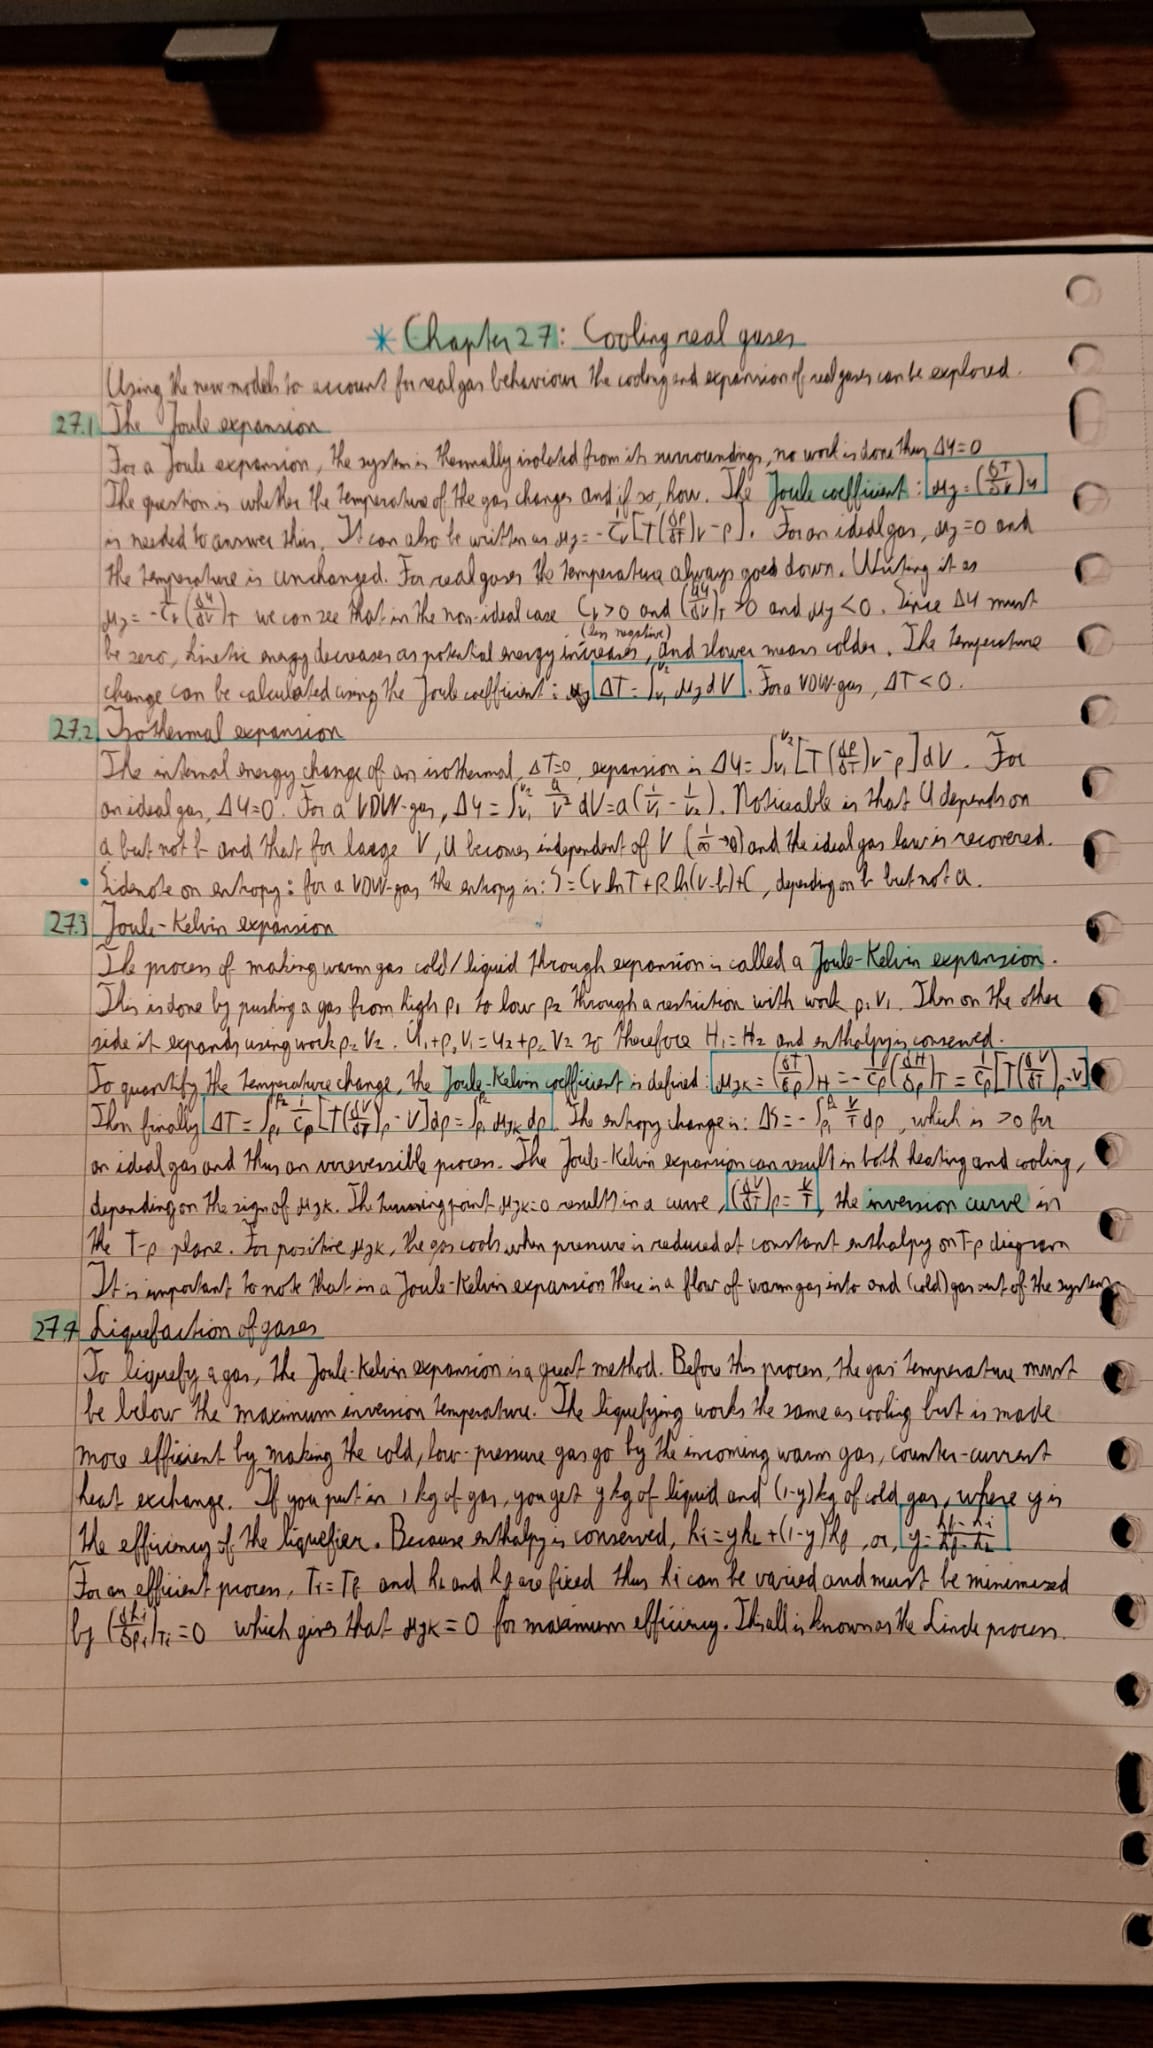 * Chapter 27: Cooling real gases
Using the new models to account for real gas behaviour the cooling and expansion of real gases can be explored.
27.1 The Joule expansion
For a Joule expansion, the system is thermally isolated from its surroundings, no work is done thus ΔU=0
The question is whether the temperature of the gas changes and if so, how. The Joule coefficient: μJ = (∂T/∂V)U
is needed to answer this. It can also be written as μJ = -1/CV [T(∂p/∂T)V - p]. For an ideal gas, μJ=0 and
the temperature is unchanged. For real gases the temperature always goes down. Writing it as
μJ = -1/CV (∂U/∂V)T we can see that in the non-ideal case CV>0 and (∂U/∂V)T >0 and μJ <0. Since ΔU must
be zero, kinetic energy decreases as potential energy increases (less negative), and slower means colder. The temperature
change can be calculated using the Joule coefficient: ΔT = ∫V1^V2 μJ dV. For a VDW-gas, ΔT<0.
27.2 Isothermal expansion
The internal energy change of an isothermal, ΔT=0, expansion is ΔU = ∫V1^V2 [T(∂p/∂T)V - p] dV. For
an ideal gas, ΔU=0. For a VDW-gas, ΔU = ∫V1^V2 a/V² dV = a(1/V1 - 1/V2). Noticeable is that U depends on
a but not b and that for large V, U becomes independent of V (1/∞→0) and the ideal gas law is recovered.
• Sidenote on entropy: for a VDW-gas the entropy is: S = CV ln T + R ln(V-b) + C, depending on b but not a.
27.3 Joule-Kelvin expansion
The process of making warm gas cold/liquid through expansion is called a Joule-Kelvin expansion.
This is done by pushing a gas from high p1 to low p2 through a restriction with work p1V1. Then on the other
side it expands using work p2V2. U1+p1V1=U2+p2V2 so therefore H1=H2 and enthalpy is conserved.
To quantify the temperature change, the Joule-Kelvin coefficient is defined: μJK = (∂T/∂p)H = -1/Cp (∂H/∂p)T = 1/Cp [T(∂V/∂T)p - V]
Then finally ΔT = ∫p1^p2 1/Cp [T(∂V/∂T)p - V] dp = ∫p1^p2 μJK dp. The entropy change is: ΔS = -∫p1^p2 V/T dp, which is >0 for
an ideal gas and thus an irreversible process. The Joule-Kelvin expansion can result in both heating and cooling,
depending on the sign of μJK. The turning point μJK=0 results in a curve, (∂V/∂T)p = V/T, the inversion curve in
the T-p plane. For positive μJK, the gas cools when pressure is reduced at constant enthalpy on T-p diagram
It is important to note that in a Joule-Kelvin expansion there is a flow of warm gas into and (cold) gas out of the system
27.4 Liquefaction of gases
To liquefy a gas, the Joule-Kelvin expansion is a great method. Before this process, the gas' temperature must
be below the "maximum inversion temperature." The liquefying works the same as cooling but is made
more efficient by making the cold, low-pressure gas go by the incoming warm gas, counter-current
heat exchange. If you put in 1 kg of gas, you get y kg of liquid and (1-y) kg of cold gas, where y is
the efficiency of the liquefier. Because enthalpy is conserved, hi = yhL + (1-y)hf, or, y = (hf - hi)/(hf - hL)
For an efficient process, Ti=Tf and hL and hf are fixed thus hi can be varied and must be minimized
by (∂hi/∂pi)Ti = 0 which gives that μJK = 0 for maximum efficiency. This all is known as the Linde process.